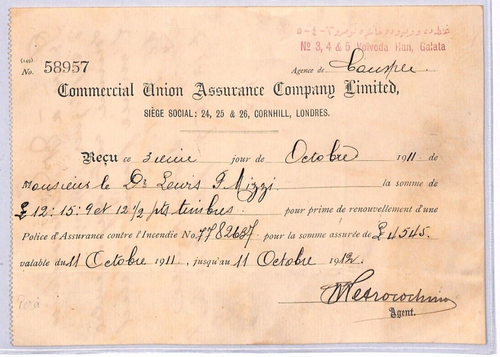 (146)
No. 58957
غلطه ده ويوده خاننده نومرو ٣-٤-٥
No 3, 4 & 5 Voivoda Han, Galata
Agence de Consple
Commercial Union Assurance Company Limited,
SIÈGE SOCIAL: 24, 25 & 26, CORNHILL, LONDRES.
Reçu ce 3ieme jour de Octobre 1911 de
Monsieur le Dr Lewis F. Mizzi la somme de
£12:15:9 et 12 1/2 pts timbres pour prime de renouvellement d'une
Police d'Assurance contre l'Incendie No. 7782687 pour la somme assurée de £4545.
valable du 11 Octobre 1911, jusqu'au 11 Octobre 1912.
Agent.